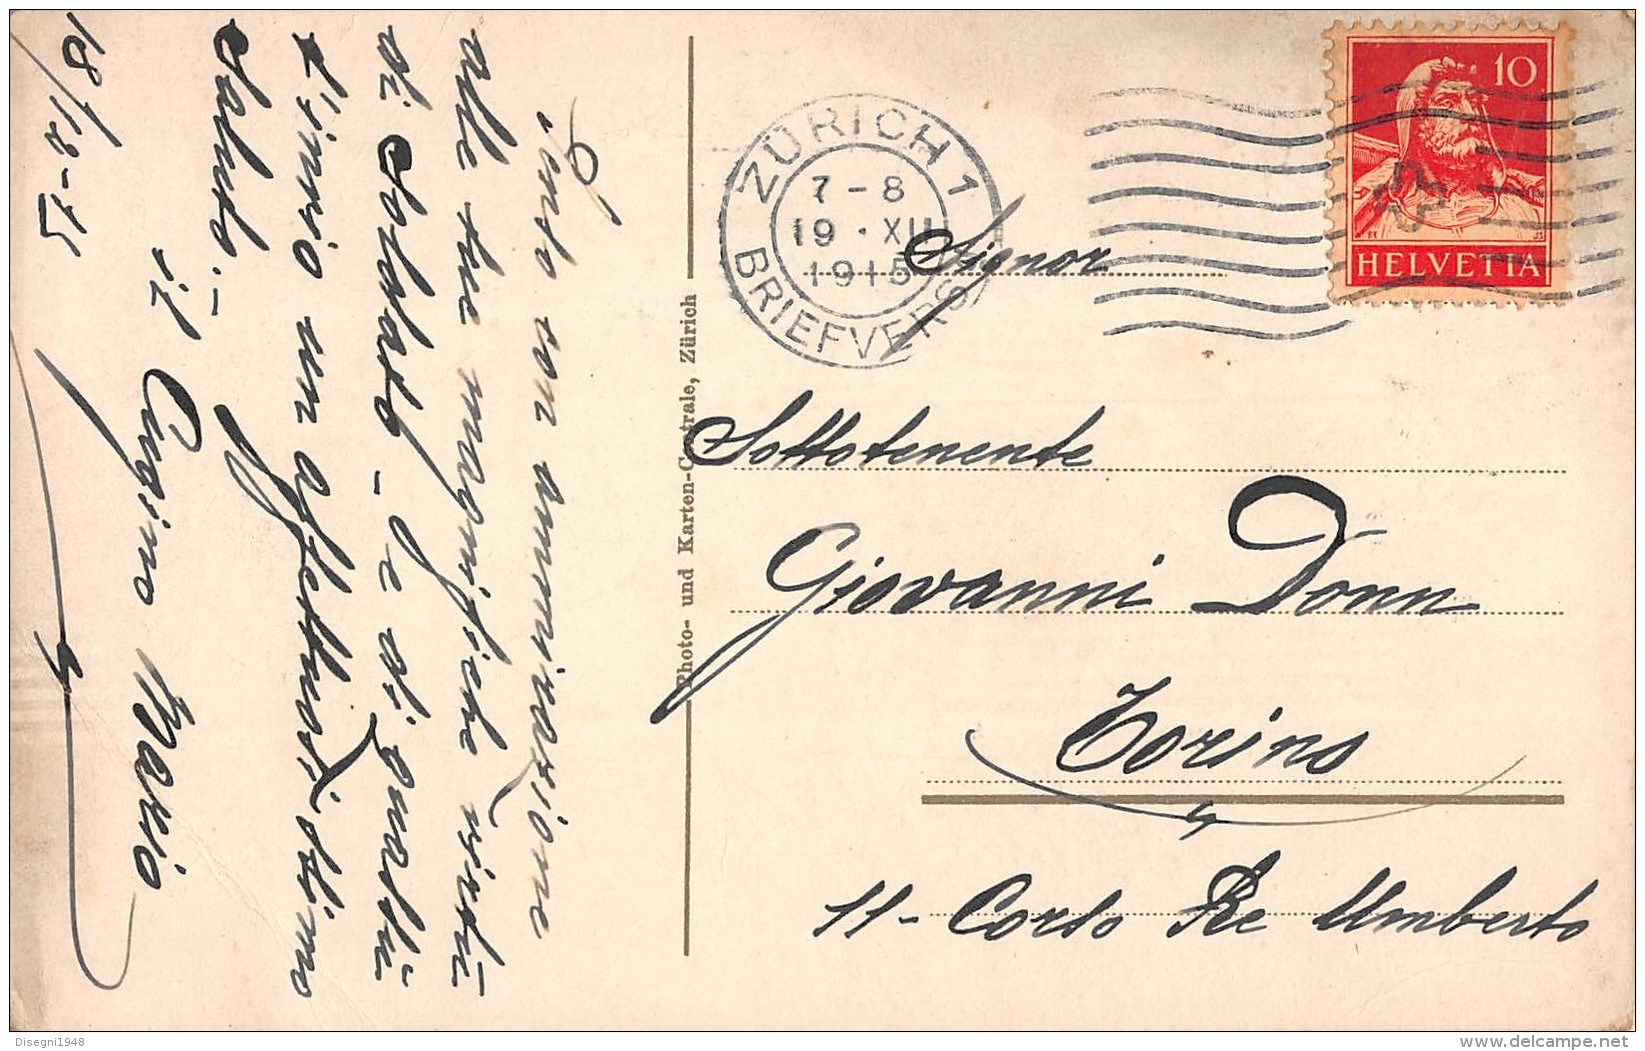 Guardo con ammirazione
alle tue magnifiche virtù
di Soldato - e di qua
t'invio un affettuosissimo
saluto. -
il Cugino Mario
18/12-15
Photo- und Karten-Centrale, Zürich
ZÜRICH 1
7-8
19·XII
1915
BRIEFVERS
10
HELVETIA
Signor
Sottotenente
Giovanni Donn
Torino
11- Corso Re Umberto
Disegni1948
delcampe.net